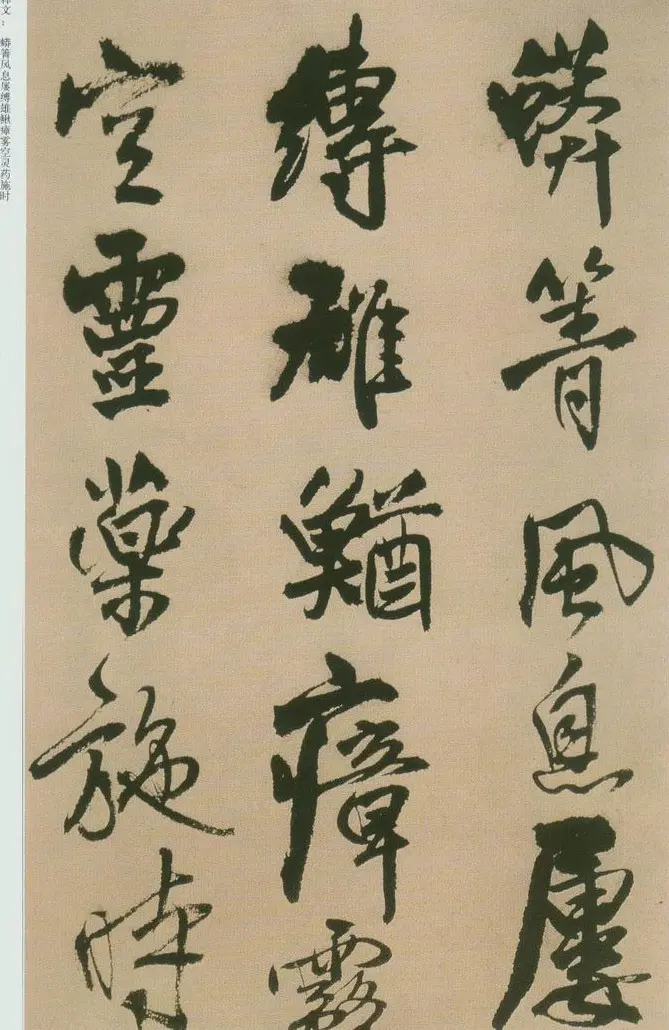 蟒箐風息屢
縛雄鰌瘴霧
空靈藥施時
释文：蟒箐风息屡缚雄鳅瘴雾空灵药施时